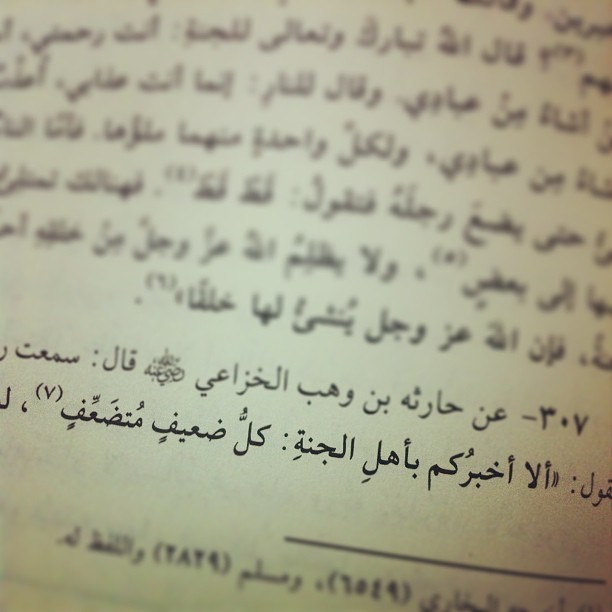 قال اللهُ تباركَ وتعالى للجنةِ: أنت رحمتي،
أشاءُ مِنْ عبادِي. وقال للنارِ: إنما أنت عذابي،
مِن عبادِي، ولكلِّ واحدةٍ منهما ملؤُها. فأمَّا
حتى يضعَ رجلَهُ فتقولُ: قَطْ قَطْ(٤). فهنالك
إلى بعضٍ(٥)، ولا يظلِمُ اللهُ عزَّ وجلَّ مِنْ خلقِهِ
فإن اللهَ عز وجل يُنشئُ لها خلقًا»(٦).
٣٠٧- عن حارثه بن وهب الخزاعي ﵁ قال: سمعت
يقول: «ألا أخبرُكم بأهلِ الجنةِ: كلُّ ضعيفٍ مُتضَعِّفٍ(٧)،
البخاري (٦٥٤٩)، ومسلم (٢٨٢٩) واللفظ له.